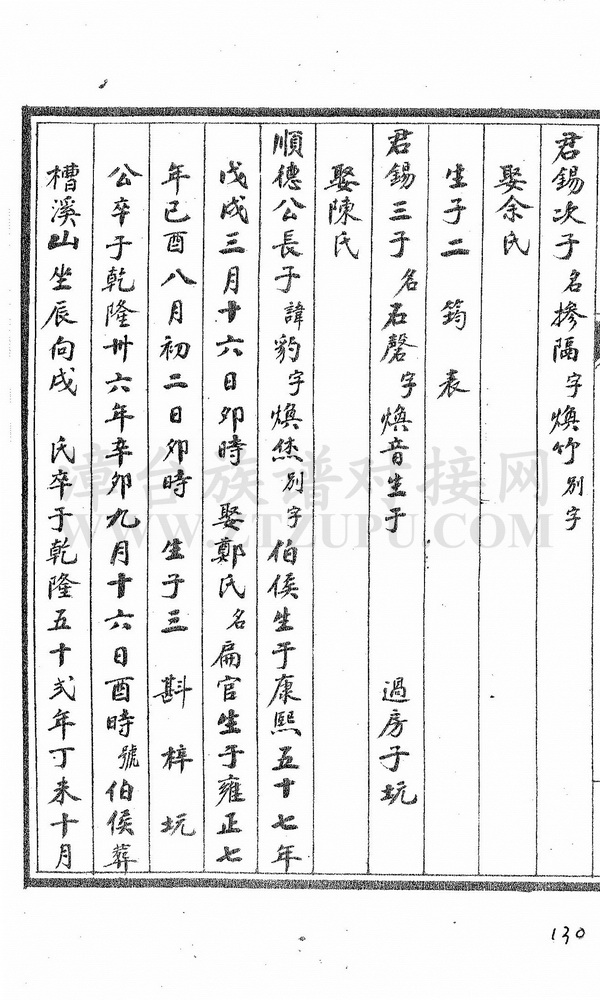 君錫次子名摻隔字煥竹別字
娶余氏
生子二 筠 表
君錫三子名石磬字煥音生于 過房子坃
娶陳氏
順德公長子諱豹字煥烋別字伯侯生于康熙五十七年
戊戌三月十六日卯時 娶鄭氏名扁官生于雍正七
年己酉八月初二日卯時 生子三 斟 梓 坃
公卒于乾隆卅六年辛卯九月十六日酉時號伯侯葬
槽溪山坐辰向戌 氏卒于乾隆五十弍年丁未十月
130
漳台族谱对接网
WWW.ZTZUPU.COM